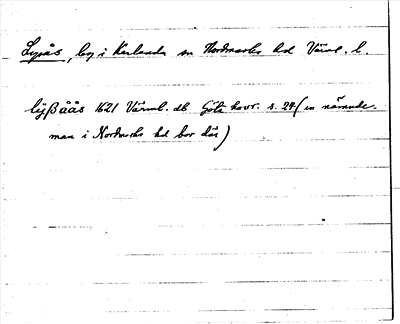 Lysås, by i Karlanda sn Nordmarks hd Värml. l.
lÿßåås 1621 Värml. db Göta hovr. s. 24 (en nämnde-
man i Nordmarks hd bor där)